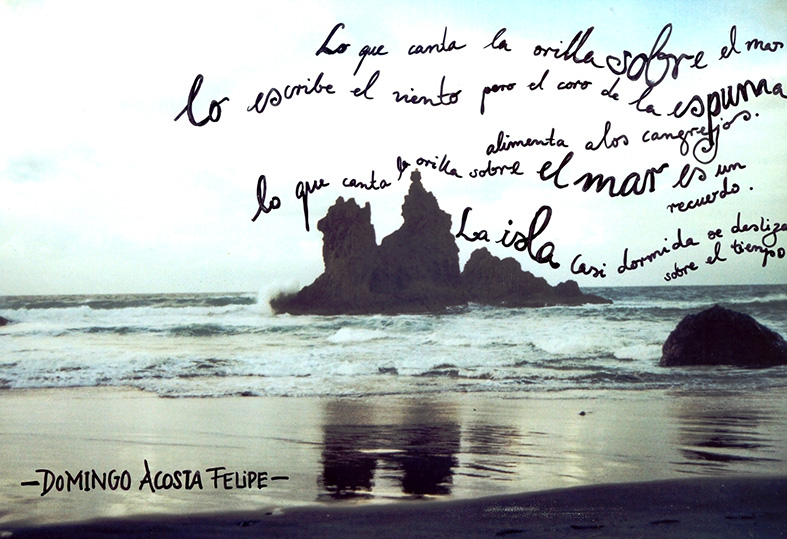 Lo que canta la orilla sobre el mar
lo escribe el viento pero el coro de la espuma
alimenta a los cangrejos.
lo que canta la orilla sobre el mar es un
recuerdo.
La isla casi dormida se desliza
sobre el tiempo
—DOMINGO ACOSTA FELIPE—